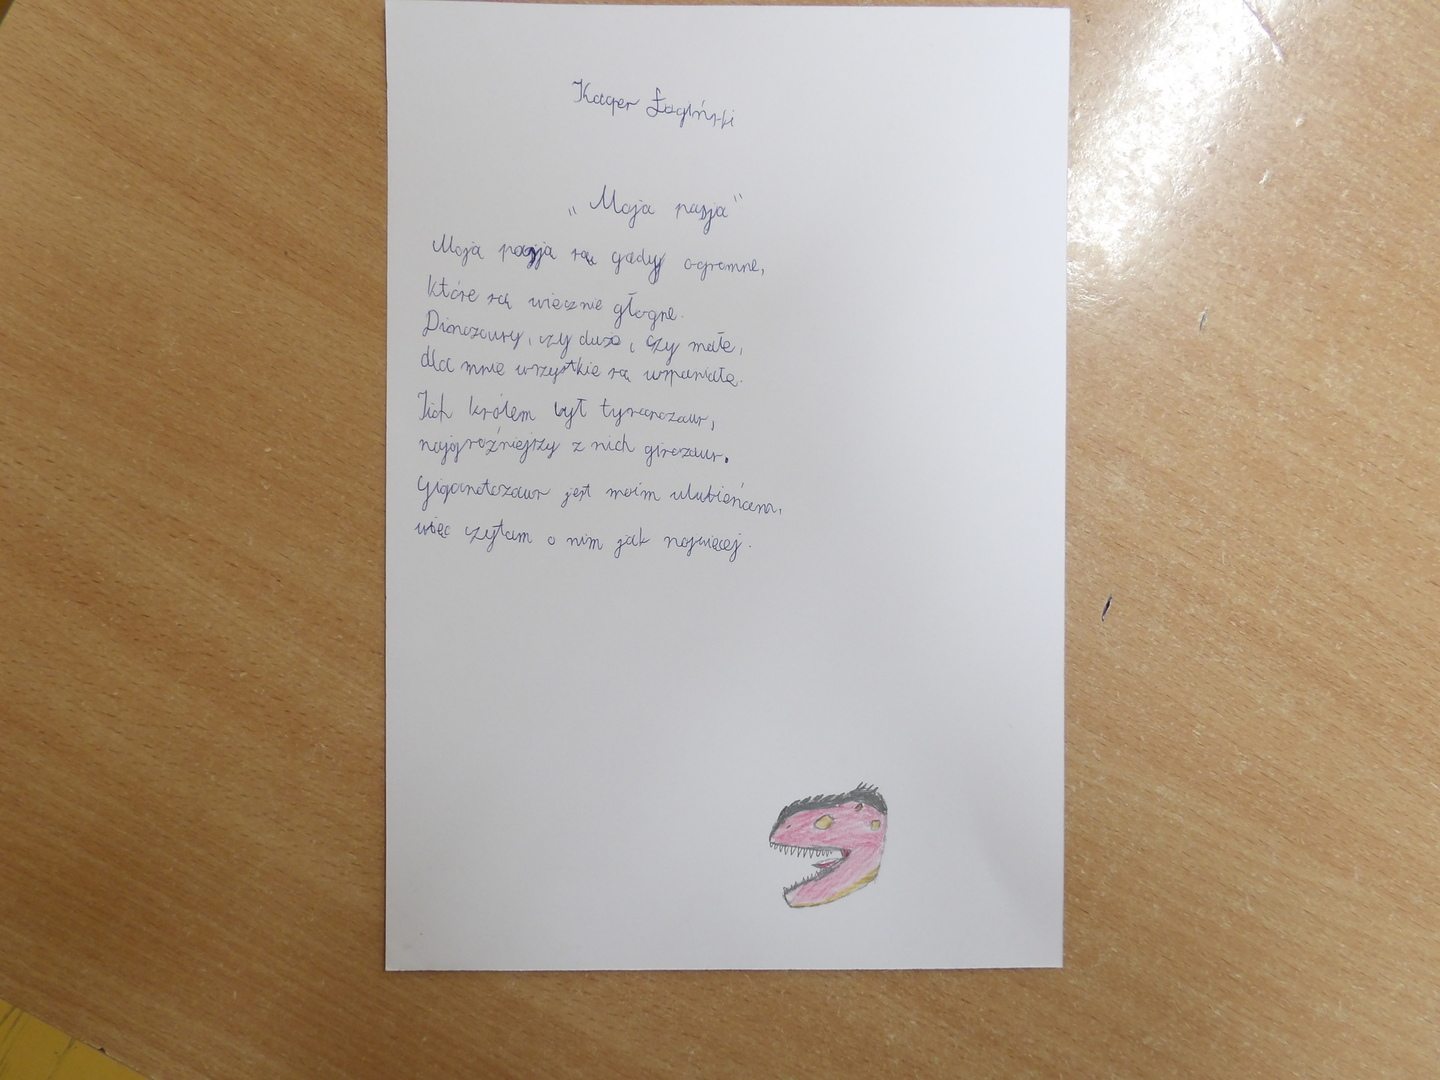 Kacper Łagiński
„Moja pasja”
Moją pasją są gady ogromne,
które są wiecznie głodne.
Dinozaury, czy duże, czy małe,
dla mnie wszystkie są wspaniałe.
Ich królem był tyranozaur,
najgroźniejszy z nich
Giganotozaur jest moim ulubieńcem,
więc czytam o nim jak najwięcej.